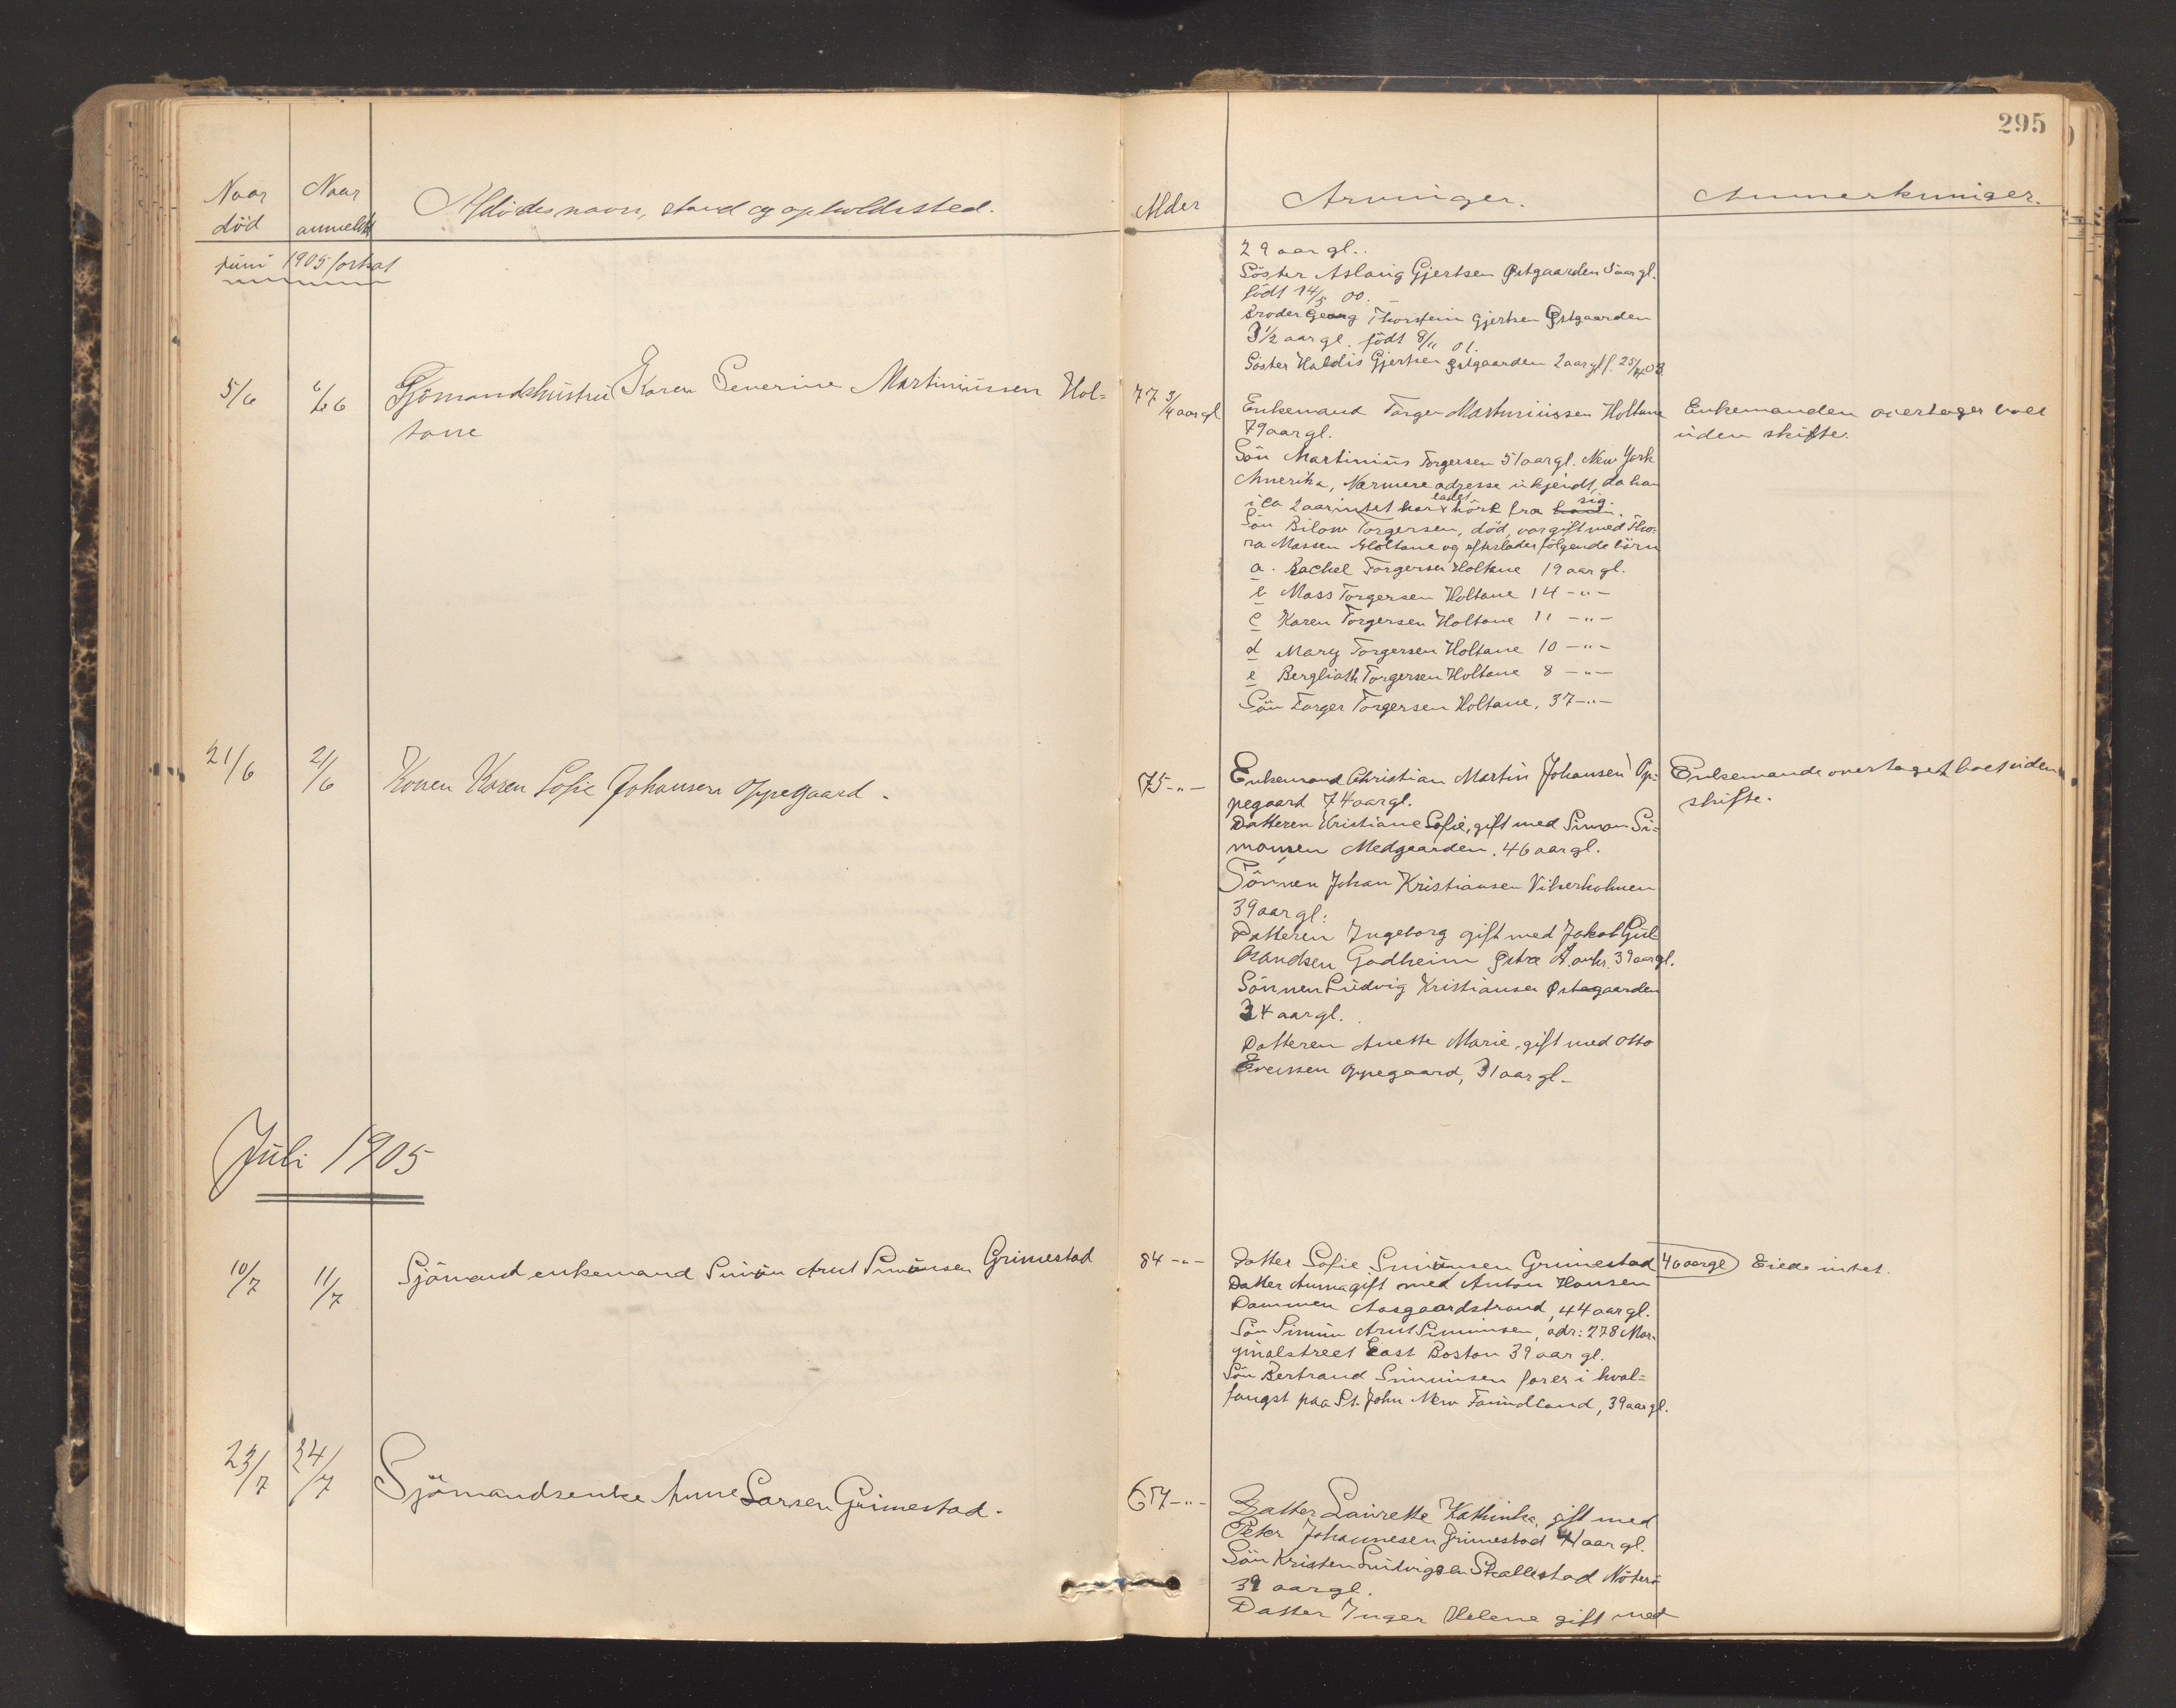 295
Naar død
Naar anmeldt
Afdødes navn, stand og opholdssted.
Alder
Arvinger.
Anmerkninger.
Juni 1905 fortsat
29 aar gl.
Söster Aslaug Gjertsen Østgaarden 5 aar gl.
födt 14/5 00.
Broder Georg Thorstein Gjertsen Østgaarden
3 1/2 aar gl. födt 8/11 01.
Söster Haldis Gjertsen Østgaarden 2 aar gl f. 25/4 03.
5/6 6/6 Sjömandshustru Karen Severine Martiniussen Hol-
tane
77 3/4 aar gl
Enkemand Torger Martiniussen Holtane
79 aar gl.
Sön Martinius Torgersen 51 aar gl. New York
Amerika, Nærmere adresse ukjendt, da han
i ca 2 aar intet har ladet höre fra sig.
Sön Bilow Torgersen, död, var gift med Tho-
ra Massen Holtane og efterlader følgende börn
a. Rachel Torgersen Holtane 19 aar gl.
b Mass Torgersen Holtane 14 -"-
c Karen Torgersen Holtane 11 -"-
d Mary Torgersen Holtane 10 -"-
e Berglioth Torgersen Holtane 8 -"-
Sön Torger Torgersen Holtane, 37 -"-
Enkemanden overtager boet
uden skifte.
21/6 21/6 Konen Karen Sofie Johansen Oppegaard.
75 -"-
Enkemand Christian Martin Johansen Op-
pegaard 74 aar gl.
Datteren Kristiane Sofie, gift med Simon Si-
monsen Medgaarden, 46 aar gl.
Sönnen Johan Kristiansen Vikerholmen
39 aar gl.
Datteren Ingeborg gift med Jakob Gul-
brandsen Godheim Østre 39 aar gl.
Sönnen Ludvig Kristiansen Østegaarden
34 aar gl.
Datteren Anette Marie, gift med Otto
Evensen Oppegaard, 31 aar gl.
Enkemande overtaget boet uden
skifte.
Juli 1905
10/7 11/7 Sjömand enkemand Simön Arnt Simonsen Grimestad
84 -"-
Datter Sofie Simonsen Grimestad 46 aar gl
Datter Anna gift med Anton Hansen
Dammen Aasgaardstrand, 44 aar gl.
Sön Simon Arnt Simonsen, adr: 278 Mar-
ginalstreet East Boston 39 aar gl.
Sön Bertrand Simonsen farer i hval-
fangst paa St. John New Faundland, 39 aar gl.
Eiede intet.
23/7 24/7 Sjömandsenke Anne Larsen Grimestad.
67 -"-
Datter Laurette Kathinka, gift med
Peter Johannesen Grimestad 41 aar gl.
Sön Kristen Ludvigsen Skallestad Nöterö
39 aar gl.
Datter Inger Helene gift med